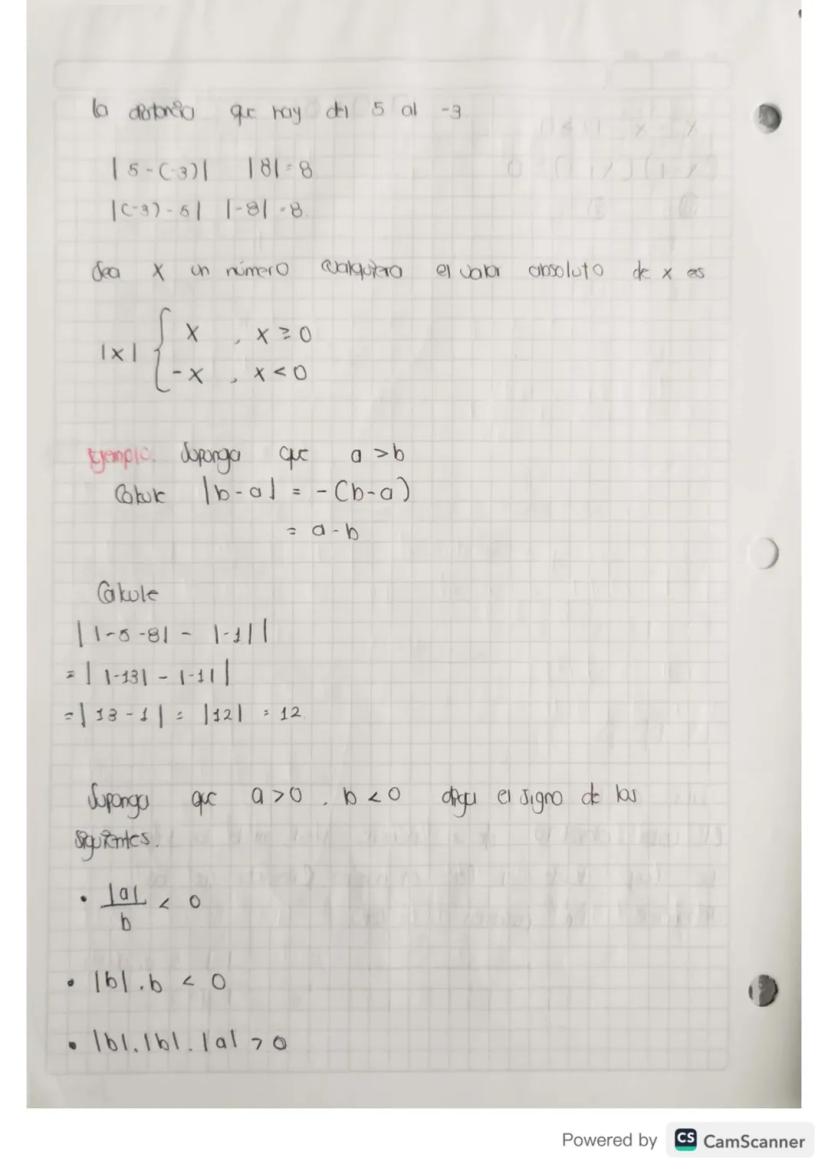 la distancia que hay del 5 al -3
|5-(-3)| |8|=8
|(-3)-5| |-8|=8
Sea x un número cualquiera el valor absoluto de x es
|x| { x , x ≥ 0
-x , x < 0
Ejemplo. Suponga que a > b
Calcule |b-a| = -(b-a)
= a-b
Calcule
| |-5-8| - |-1| |
= | |-13| - |-1| |
= | 13 - 1 | = |12| = 12
Suponga que a > 0 , b < 0 diga el signo de las
siguientes.
• |a|/b < 0
• |b|.b < 0
• |b|.|b|.|a| > 0
Powered by CS CamScanner